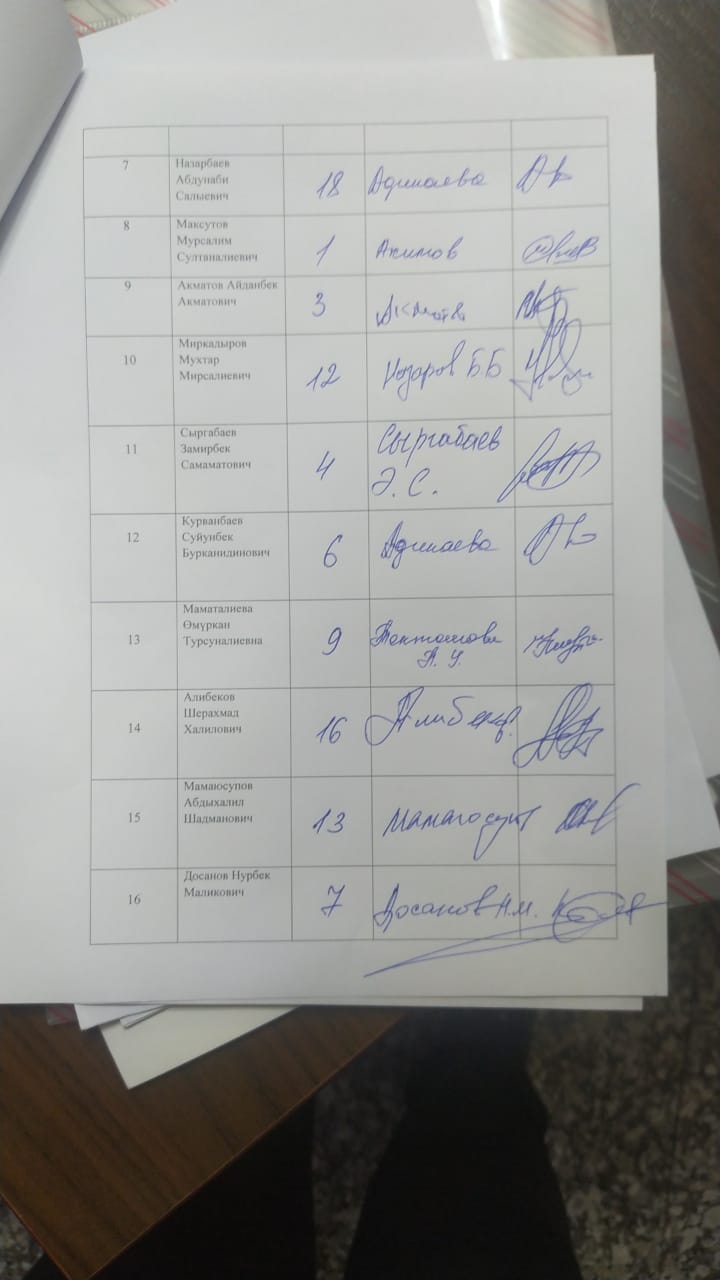 7
Назарбаев
Абдунаби
Салыевич
18
Адинаева
8
Максутов
Мурсалим
Султаналиевич
1
Акимов
9
Акматов Айданбек
Акматович
3
10
Миркалыров
Мухтар
Мирсалиевич
12
Назаров Б Б
11
Сыргабаев
Замирбек
Самаматович
4
Сыргабаев
Э. С.
12
Курванбаев
Суйунбек
Бурканидинович
6
Адинаева
13
Маматалиева
Өмүркан
Турсуналиевна
9
14
Алибеков
Шерахмад
Халилович
16
15
Мамаюсупов
Абдыхалил
Шадманович
13
16
Досанов Нурбек
Маликович
7
Досанов Н.М.